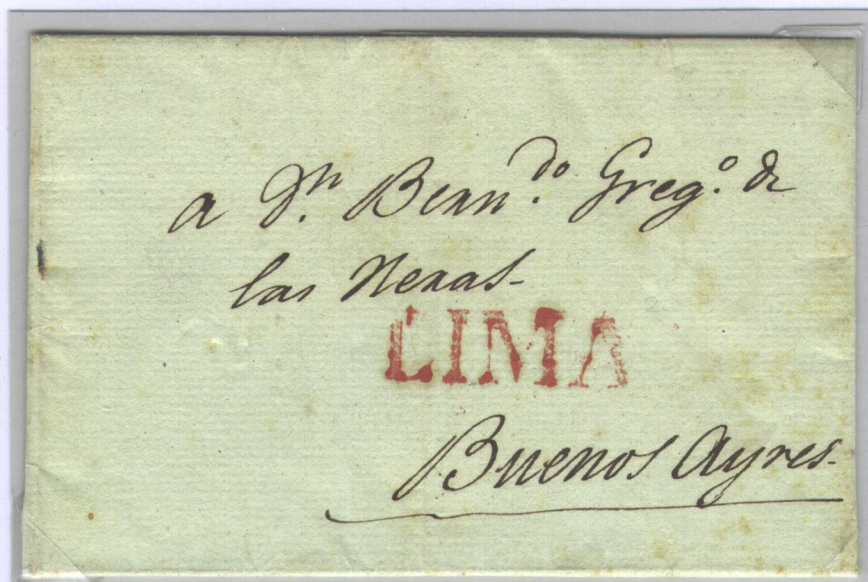 a Dn. Bern.do Greg.o de
las Heras
LIMA
Buenos Ayres.